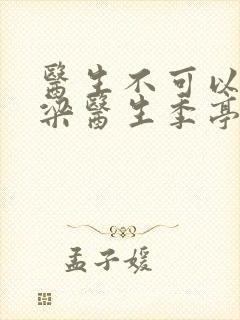 醫生不可以
梁醫生季亭
孟子媛